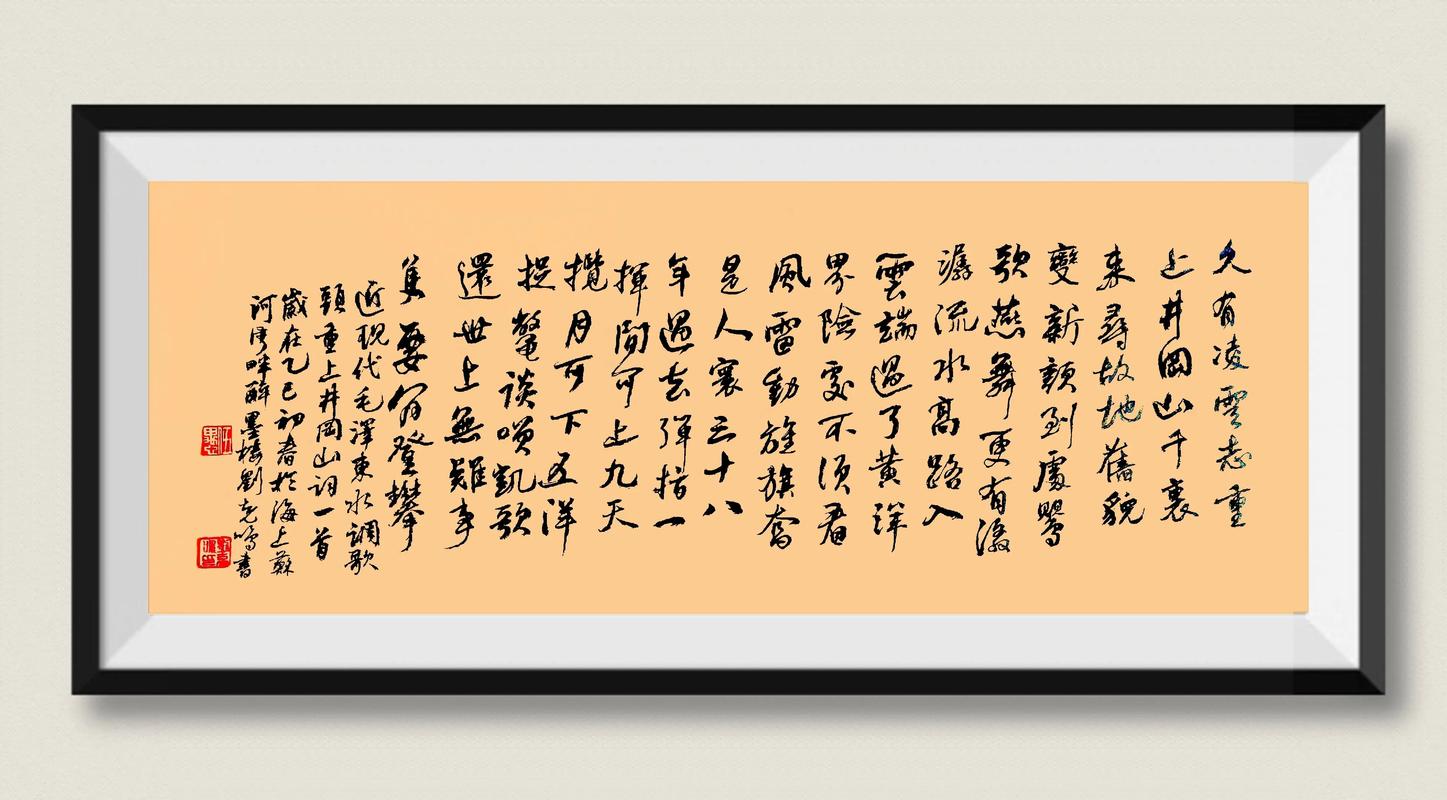 久有凌雲志重
上井岡山千裏
来尋故地舊貌
變新顏到處鶯
歌燕舞更有潺
潺流水高路入
雲端過了黄洋
界險處不須看
風雷動旌旗奮
是人寰三十八
年過去彈指一
揮間可上九天
攬月可下五洋
捉鱉談笑凱歌
還世上無難事
隻要肯登攀
近現代毛澤東水調歌
頭重上井岡山詞一首
歲在乙巳初春於海上蘇
河灣畔醉墨樓劉克鳴書